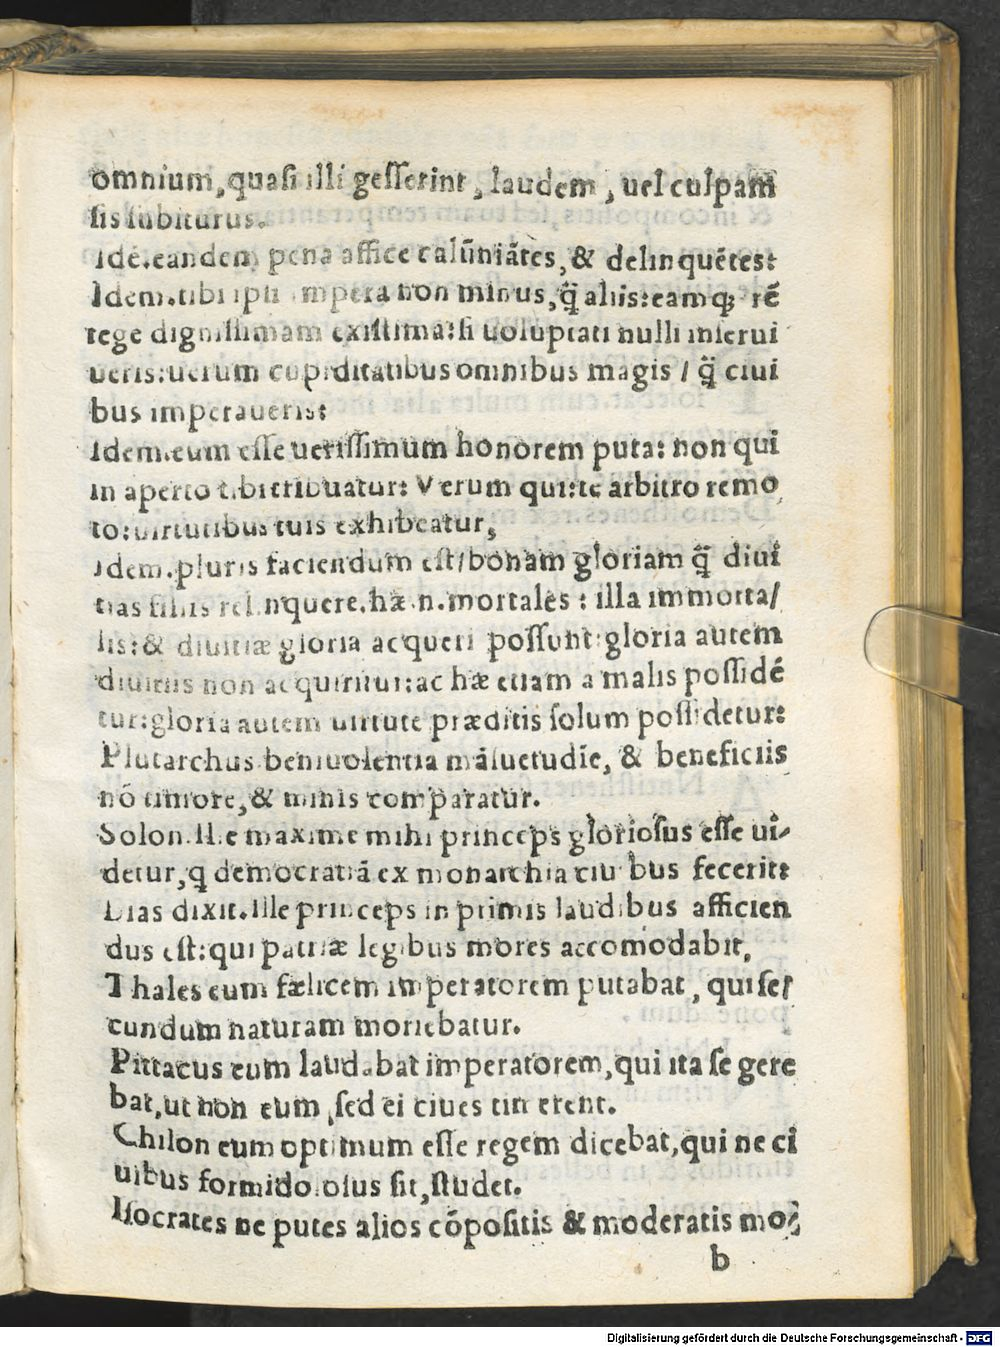 omnium, quasi illi gesserint, laudem, uel culpam
sis subiturus.
Idē. eandem pena affice calūniātes, & delinquētes:
Idem. tibi ipsi impera non minus, q̄ aliis: eamqꝫ rē
rege dignissimam existima: si uoluptati nulli inserui
ueris: uerum cupiditatibus omnibus magis / q̄ ciui
bus imperaueris:
Idem. eum esse uerissimum honorem puta: non qui
in aperto tibi tribuatur: Verum qui: te arbitro remo
to: uirtutibus tuis exhibeatur,
Idem. pluris faciendum est / bonam gloriam q̄ diui
tias filiis relinquere. hæ .n. mortales : illa immorta/
lis: & diuitiæ gloria acqueri possunt: gloria autem
diuitiis non acquiritur: ac hæ etiam a malis possidē
tur: gloria autem uirtute præditis solum possidetur:
Plutarchus beniuolentia māsuetudīe, & beneficiis
nō timore, & minis comparatur.
Solon. Ille maxime mihi princeps gloriosus esse ui-
detur, q democratiā ex monarchia ciuibus fecerit:
Bias dixit. Ille princeps in primis laudibus afficien
dus est: qui patriæ legibus mores accomodabit,
Thales eum fælicem imperatorem putabat, qui se/
cundum naturam moriebatur.
Pittacus eum laudabat imperatorem, qui ita se gere
bat, ut non eum, sed ei ciues timerent.
Chilon eum optimum esse regem dicebat, qui ne ci
uibus formidolosus sit, studet.
Isocrates ne putes alios cōpositis & moderatis moꝝ
b
Digitalisierung gefördert durch die Deutsche Forschungsgemeinschaft - DFG